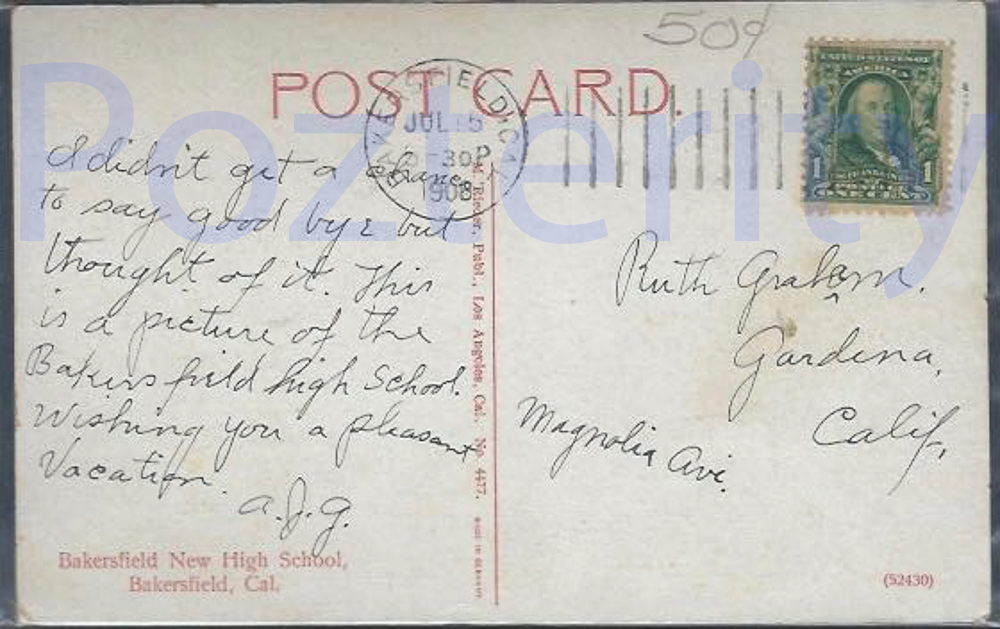 50¢
POST CARD.
BAKERSFIELD, CAL
JUL 15
-30P
1908
UNITED STATES OF
AMERICA
1 1
FRANKLIN
I didn't get a chance
to say good bye but
thought of it. This
is a picture of the
Bakersfield high School.
Wishing you a pleasant
Vacation.
a.J.G.
Bakersfield New High School,
Bakersfield, Cal.
M. Rieder, Publ., Los Angeles, Cal. No. 4477. MADE IN GERMANY
Ruth Graham.
Gardena,
Calif,
Magnolia Ave.
(52430)
Pozterity